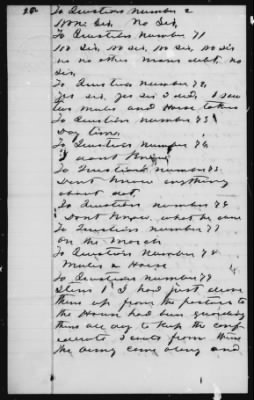 To Question number 2
None Sir, No Sir,
To Question number 71
No Sir, no Sir, no Sir, no Sir
no no other mans debt, no
Sir,
To Question number 72,
Yes sir, yes Sir I did, I saw
two mules and Horse taken
To Question number 73
Day time,
To Question number 74
I dont Know
To Question number 75
Dont Know anything
about det,
To Question number 76
Dont Know, what he came
To Question number 77
on the march
To Question number 78
Mules & Horse
To Question number 79
Item 1 I had just drove
them up from the pasture to
the House had been guarding
them all day to Keep the conf
ederats from them
the army came along and